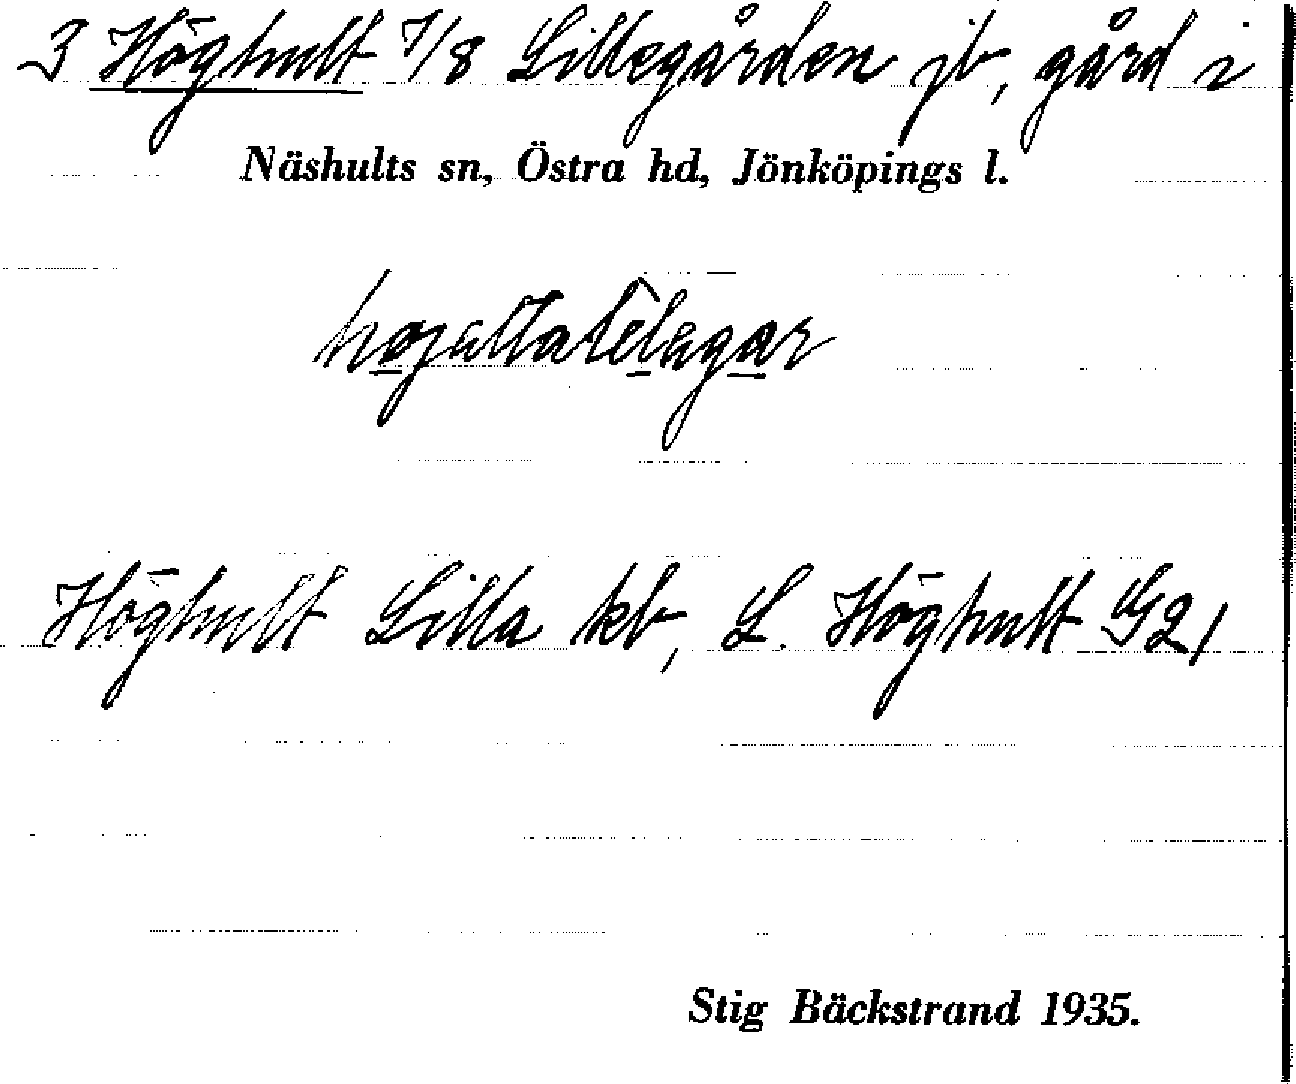 3 Höghult 7/8 Lillegården jb, gård i
Näshults sn, Östra hd, Jönköpings l.
Höghult Lilla kb, L. Höghult G21
Stig Bäckstrand 1935.